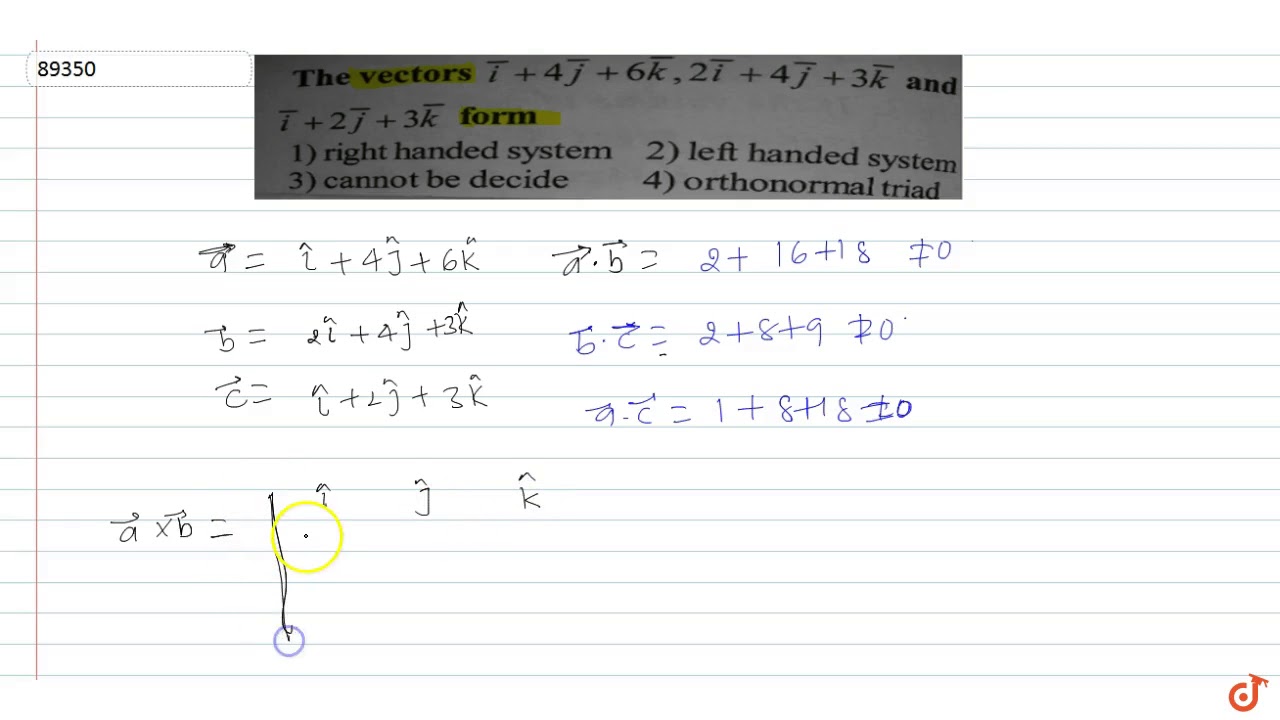 89350
The vectors i̅ + 4j̅ + 6k̅, 2i̅ + 4j̅ + 3k̅ and
i̅ + 2j̅ + 3k̅ form
1) right handed system 2) left handed system
3) cannot be decide 4) orthonormal triad
a⃗ = î + 4ĵ + 6k̂ a⃗.b⃗ = 2 + 16 + 18 ≠ 0
b⃗ = 2î + 4ĵ + 3k̂ b⃗.c⃗ = 2 + 8 + 9 ≠ 0
c⃗ = î + 2ĵ + 3k̂ a⃗.c⃗ = 1 + 8 + 18 ≠ 0
î ĵ k̂
a⃗ × b⃗ =